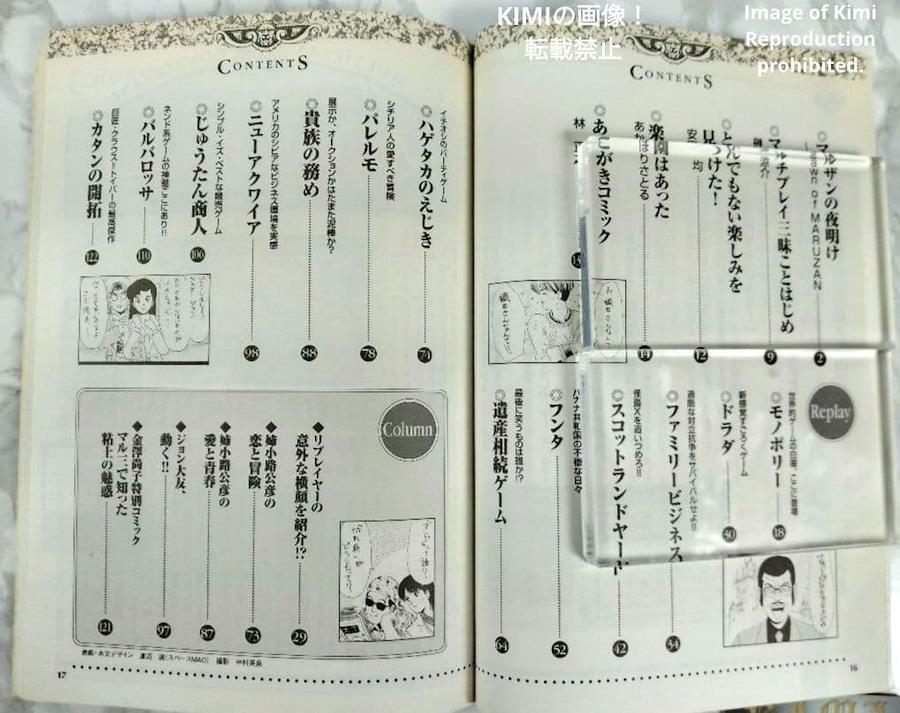 KIMIの画像！
転載禁止
Image of Kimi
Reproduction
prohibited.
CONTENTS
◎マルザンの夜明け
Dawn of MARUZAN
2
◎マルチプレイ三昧ことはじめ
9
◎とんでもない楽しみを
見つけた！
安 均
12
◎楽園はあった
あかほりさとる
14
◎あとがきコミック
林
Replay
世界的ゲームの白眉、ここに登場
◎モノポリー
18
新感覚すごろくゲーム
◎ドラダ
30
過酷な対立抗争をサバイバルせよ!!
◎ファミリービジネス
34
怪盗Xを追いつめろ!!
◎スコットランドヤード
42
バナナ共和国の不穏な日々
◎フンタ
52
最後に笑うものは誰か!?
◎遺産相続ゲーム
64
16
CONTENTS
イチオシのパーティゲーム
◎ハゲタカのえじき
74
シチリア人の愛すべき冒険
◎パレルモ
78
展示か、オークションかはたまた泥棒か？
◎貴族の務め
88
アメリカのシビアなビジネス環境を実感
◎ニューアクワイア
98
シンプル・イズ・ベストな競売ゲーム
◎じゅうたん商人
106
ネンド系ゲームの神髄ここにあり!!
◎バルバロッサ
110
巨匠・クラウス＝トイバーの最高傑作
◎カタンの開拓
122
Column
◆リプレイヤーの
意外な横顔を紹介!?
29
◆姉小路公彦の
恋と冒険
73
◆姉小路公彦の
愛と青春
87
◆ジョン大友、
動く!!
97
◆金澤尚子特別コミック
マル三で知った
粘土の魅惑
121
表紙・本文デザイン 渡辺 誠(スペースMAO) 撮影 中村英良
17